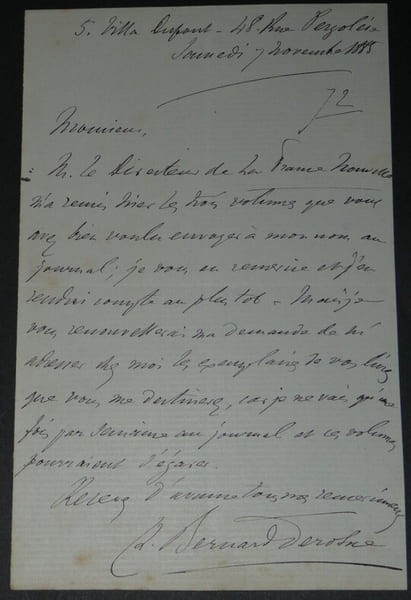 5. Villa Dupont - 48 Rue Pergolèse
Samedi 7 novembre 1885
72
Monsieur,
M. le Directeur de La France Nouvelle
m'a remis hier les trois volumes que vous
avez bien voulu envoyer à mon nom au
journal; je vous en remercie et j'en
rendrai compte au plus tôt - Mais je
vous renouvellerai ma demande de m'
adresser chez moi les exemplaires de vos livres
que vous me destinerez, car je ne vais qu'une
fois par semaine au journal et ces volumes
pourraient s'égarer.
Recevez d'avance tous mes remerciements
Bernard Derosne